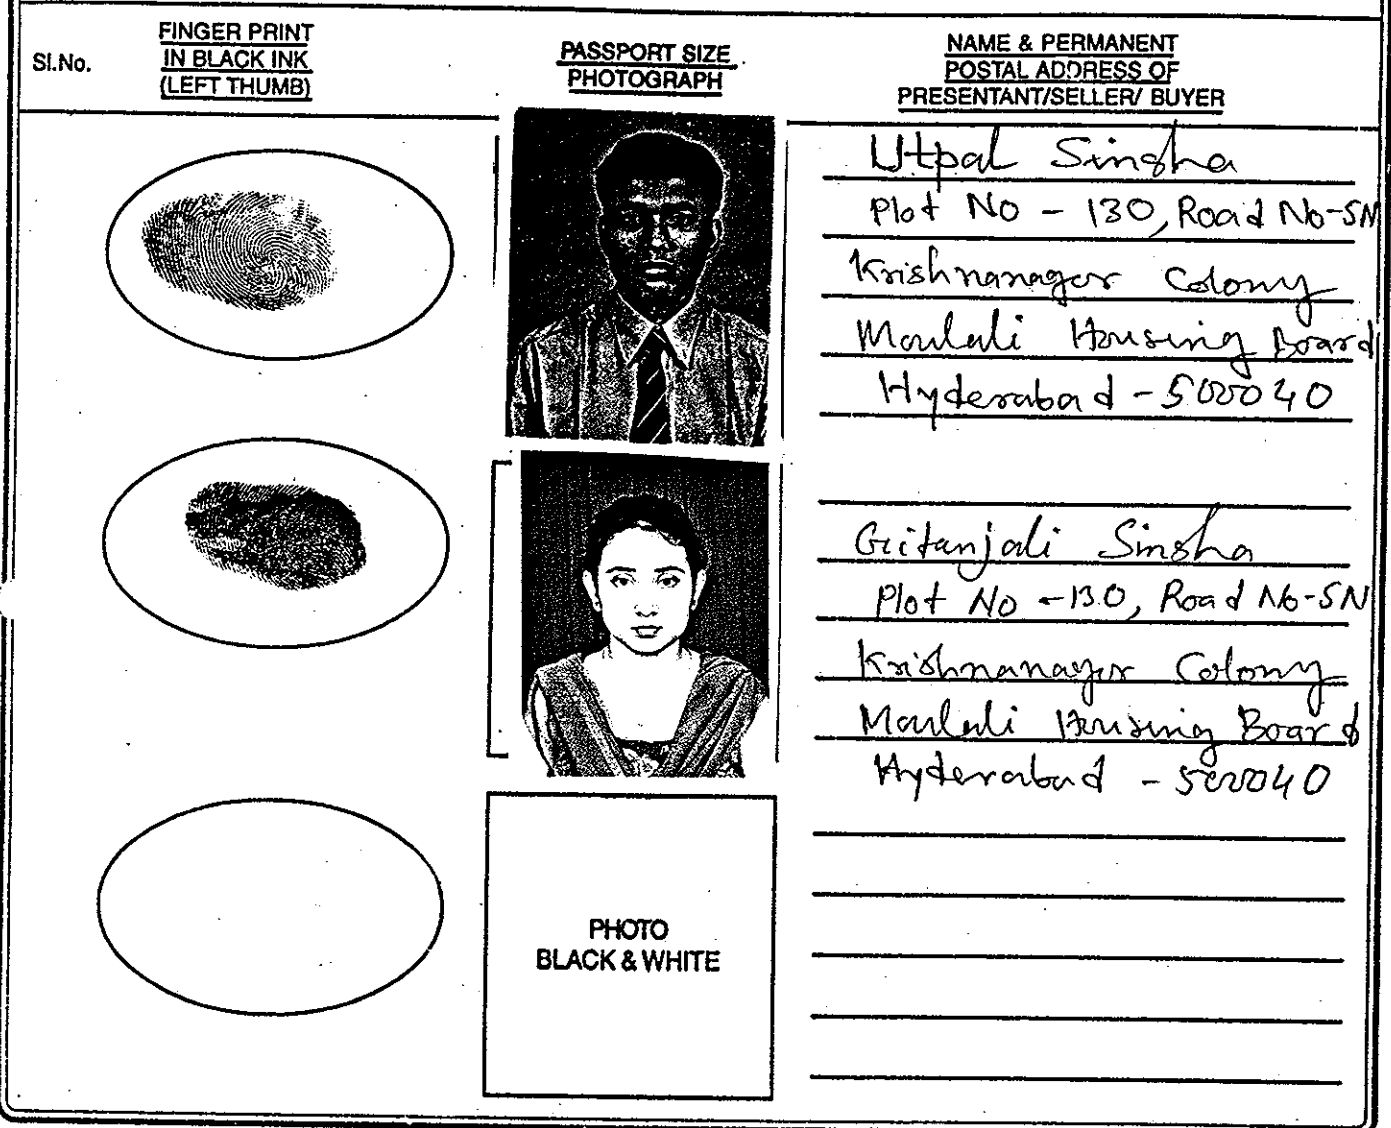 Sl.No.
FINGER PRINT
IN BLACK INK
(LEFT THUMB)
PASSPORT SIZE
PHOTOGRAPH
NAME & PERMANENT
POSTAL ADDRESS OF
PRESENTANT/SELLER/ BUYER
Utpal Singha
Plot No - 130, Road No-5N
Krishnanagar Colony
Moulali Housing Board
Hyderabad - 500040
Gitanjali Singha
Plot No - 130, Road No-5N
Krishnanagar Colony
Moulali Housing Board
Hyderabad - 500040
PHOTO
BLACK & WHITE